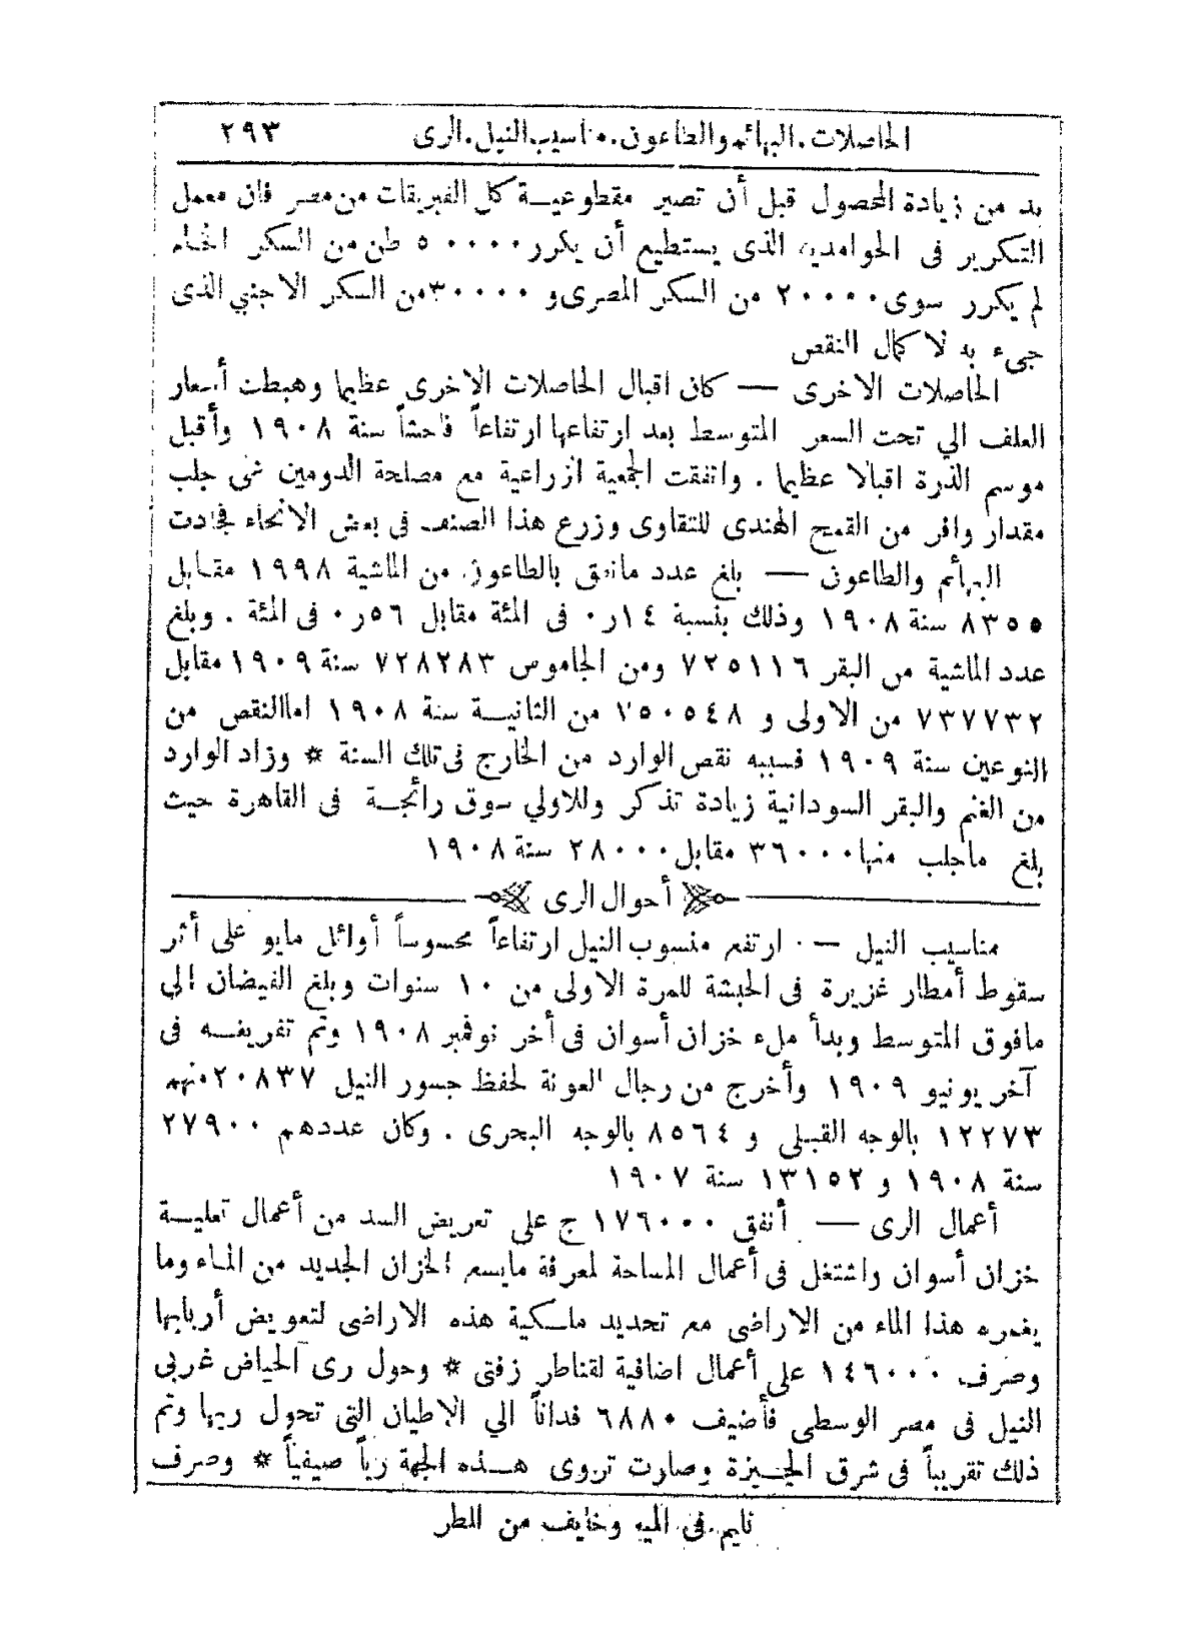 الحاصلات. البهائم والطاعون. مناسيب النيل. الرى ٢٩٣
بد من زيادة المحصول قبل أن تصير مقطوعيـة كل الفبريقات من مصر فان معمل
التكرير فى الحوامديه الذى يستطيع أن يكرر ٥٠٠٠٠ طن من السكر الخام
لم يكرر سوى ٢٠٠٠٠ من السكر المصرى و ٣٠٠٠٠ من السكر الاجنبي الذى
جىء به لا كمال النقص
الحاصلات الاخرى — كان اقبال الحاصلات الاخرى عظيما وهبطت أسعار
العلف الي تحت السعر المتوسط بعد ارتفاعها ارتفاعاً فاحشاً سنة ١٩٠٨ وأقبل
موسم الذرة اقبالا عظيما . واتفقت الجمعية الزراعية مع مصلحة الدومين على جلب
مقدار وافر من القمح الهندى للتقاوى وزرع هذا الصنف فى بعض الانحاء فجادت
البهائم والطاعون — بلغ عدد مانفق بالطاعون من الماشية ١٩٩٨ مقابل
٨٣٥٥ سنة ١٩٠٨ وذلك بنسبة ١٤ر٠ فى المئة مقابل ٥٦ر٠ فى المئة . وبلغ
عدد الماشية من البقر ٧٢٥١١٦ ومن الجاموس ٧٢٨٢٨٣ سنة ١٩٠٩ مقابل
٧٣٧٧٣٢ من الاولى و ٧٥٠٥٤٨ من الثانيـة سنة ١٩٠٨ اما النقص من
النوعين سنة ١٩٠٩ فسببه نقص الوارد من الخارج فى تلك السنة * وزاد الوارد
من الغنم والبقر السودانية زيادة تذكر وللاولي سوق رائجـة فى القاهرة حيث
بلغ ماجلب منها ٣٦٠٠٠ مقابل ٢٨٠٠٠ سنة ١٩٠٨
أحوال الرى
مناسيب النيل — ارتفع منسوب النيل ارتفاعاً محسوساً أوائل مايو على أثر
سقوط أمطار غزيرة فى الحبشة للمرة الاولى من ١٠ سنوات وبلغ الفيضان الي
مافوق المتوسط وبدأ ملء خزان أسوان فى أخر نوفمبر ١٩٠٨ وتم تفريغـه فى
آخر يونيو ١٩٠٩ وأخرج من رجال العونة لحفظ جسور النيل ٢٠٨٣٧ منهم
١٢٢٧٣ بالوجه القبلي و ٨٥٦٤ بالوجه البحرى . وكان عددهم ٢٧٩٠٠
سنة ١٩٠٨ و ١٣١٥٢ سنة ١٩٠٧
أعمال الرى — أنفق ١٧٦٠٠٠ ج على تعريض السد من أعمال تعليـة
خزان أسوان واشتغل فى أعمال المساحة لمعرفة مايسع الخزان الجديد من الماء وما
يغمره هذا الماء من الاراضى مع تحديد ملكية هذه الاراضى لتعويض أربابها
وصرف ١٤٦٠٠٠ على أعمال اضافية لقناطر زفتى * وحول رى الحياض غربى
النيل فى مصر الوسطى فأضيف ٦٨٨٠ فداناً الي الاطيان التى تحول ريها وتم
ذلك تقريباً فى شرق الجـيزة وصارت تروى هـذه الجهة رياً صيفياً * وصرف
نايم فى الميه وخايف من المطر